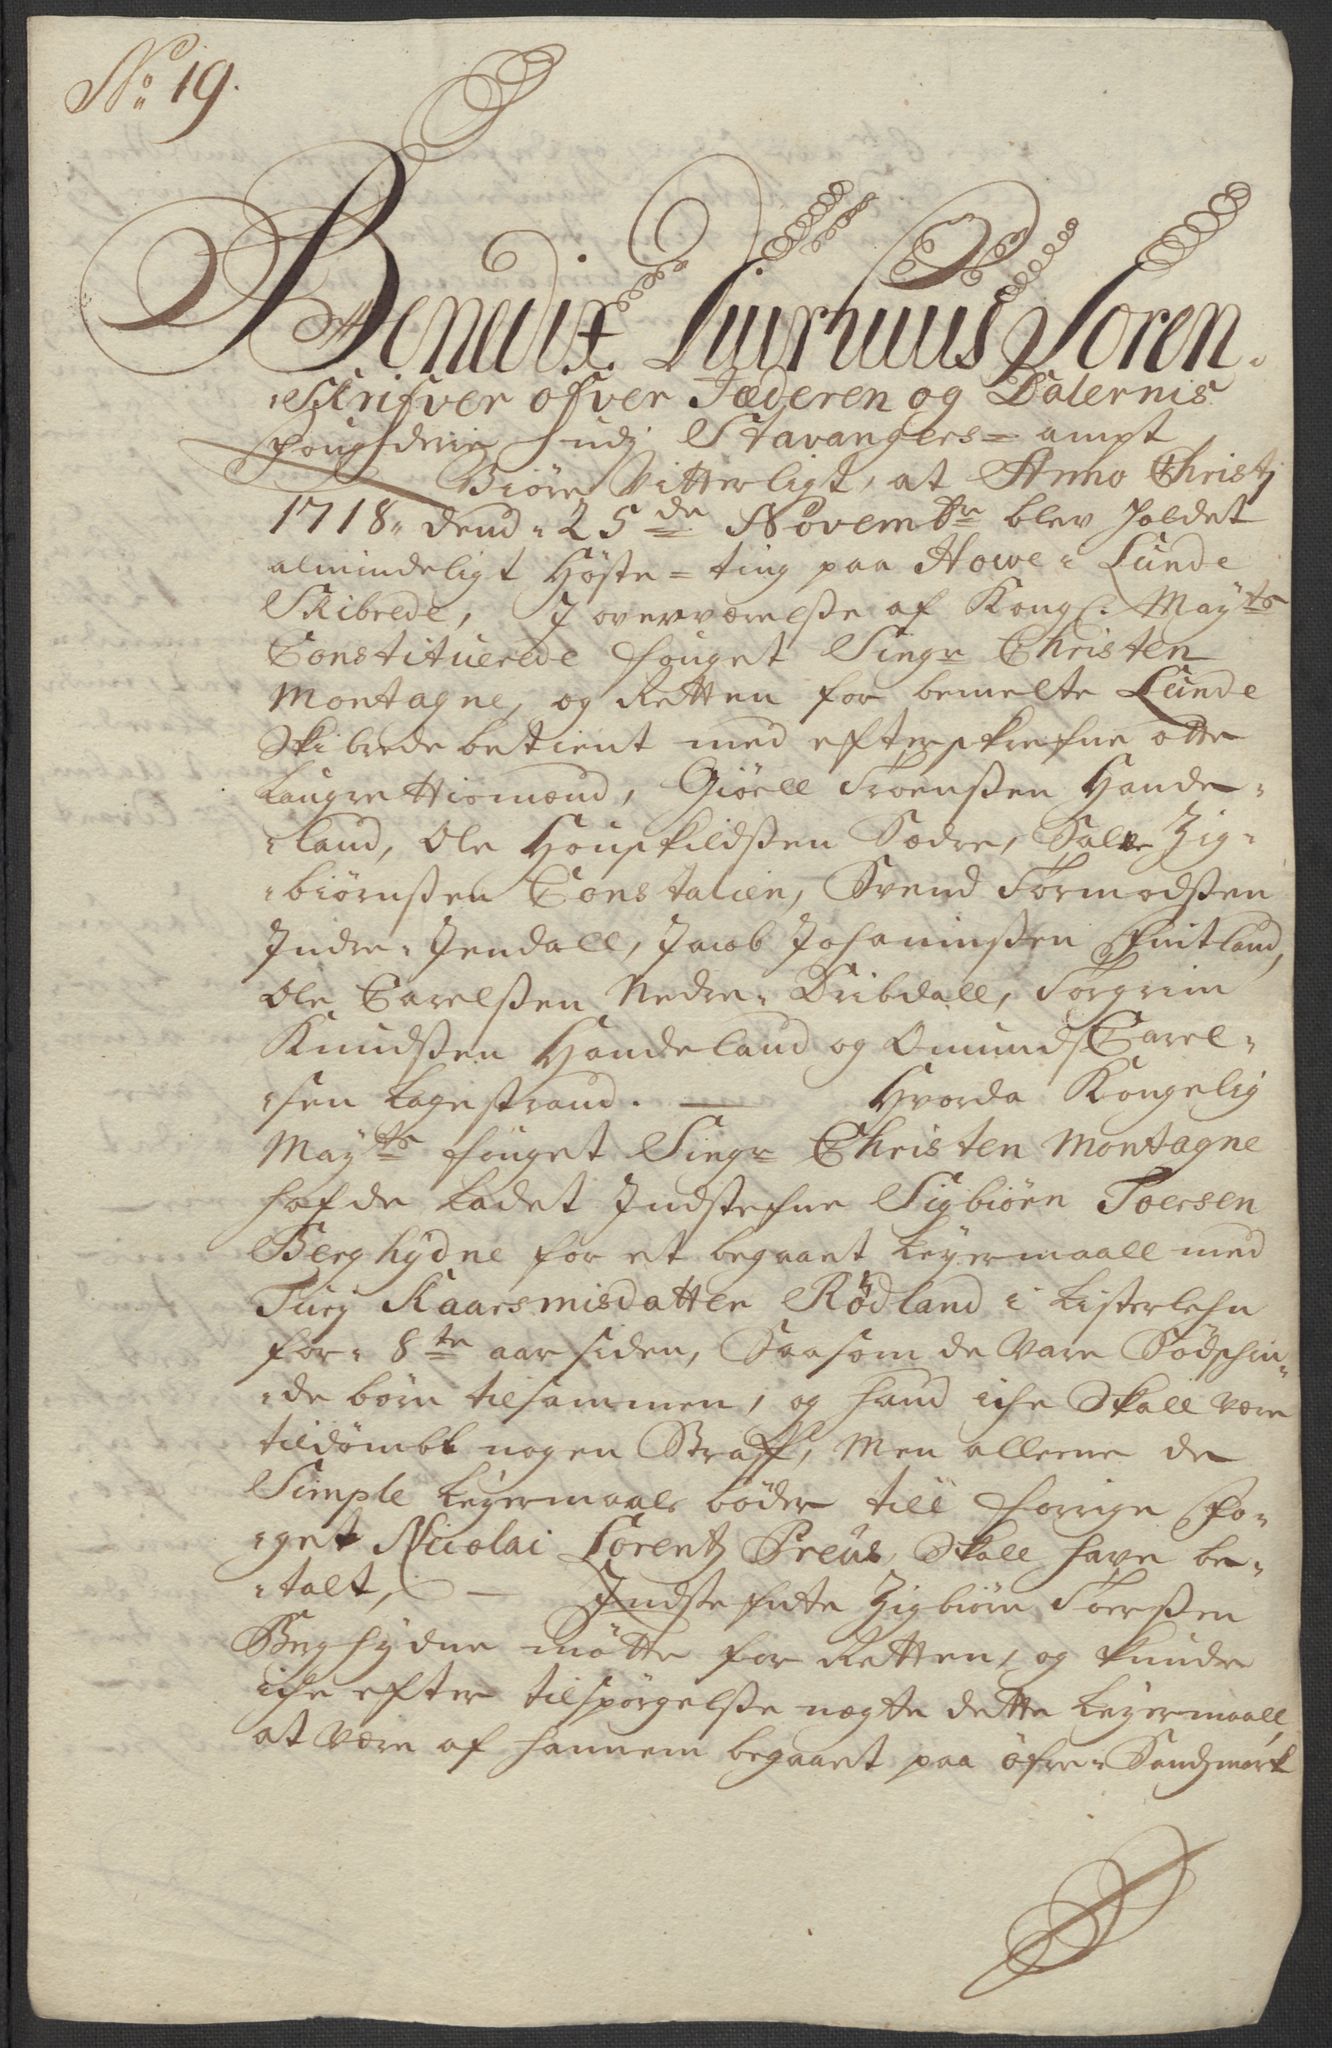 No 19.
Bendix Liurhuus Soren-
-Skrifver ofver Jæderen og Dalernis
fougderie udj Stavangers-ampt,
Giöre Vitterligt, at Anno Christj
1718. dend. 25de Novembr blev holdet
almindeligt Höste-ting paa Howe i Lunde
Skibrede, J overværelße af Kongl. Mayts
Constituerede fouget Singr Christen
Montagne, og Retten for bemelte Lunde
Skibrede betient med efterskrefne otte
Laugrettismænd, Giöell Troenßen Hande-
-land, Ole Houskildßen Sædre, Salve Zig-
-biörnßen Constalien, Svend Tormodßen
Indre-Jendall, Jacob Johaninßen Fuitland,
Ole Carelßen Nedre-Dribdall, Torgrim
Knudßen Handeland og Omund Carel-
-sen Lagestrand. — Hvorda Kongelig
Mayts fouget Singr Christen Montagne
hafde Ladet Indstefne Sigbiörn Toersen
Berghydne for et begaaet Leyermaall med
Turj Kaarsmisdatter Rödland i Listerlehn
for 8te aar siden, Saasom de vare Södschin-
-de börn tilsammen, og hand iche Skall være
tildömbt nogen Straff, Men allene de
Simple Leyermaals böder till forrige Fo-
-get Nicolai Lorentz Preus, Skall have be-
-talt, — Indstefnte Zigbiörn Toerßen
Berghydne mötte for Retten, og kunde
iche efter tilspörgelße nægte dette Leyermaall,
at være af hannem begaaet paa öfre-Sandsmark